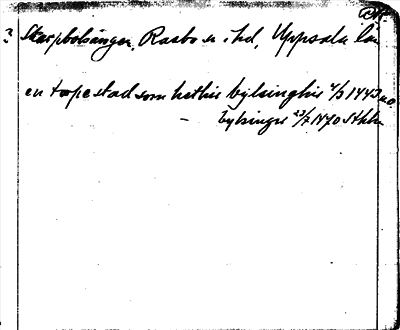 ? Skarpbolsänger, Rasbo sn. i. hd, Uppsala län
en torpe stad som hethir bylsinghis 4/3 1443 no.
— bylsingis 23/7 1470 Sthlm